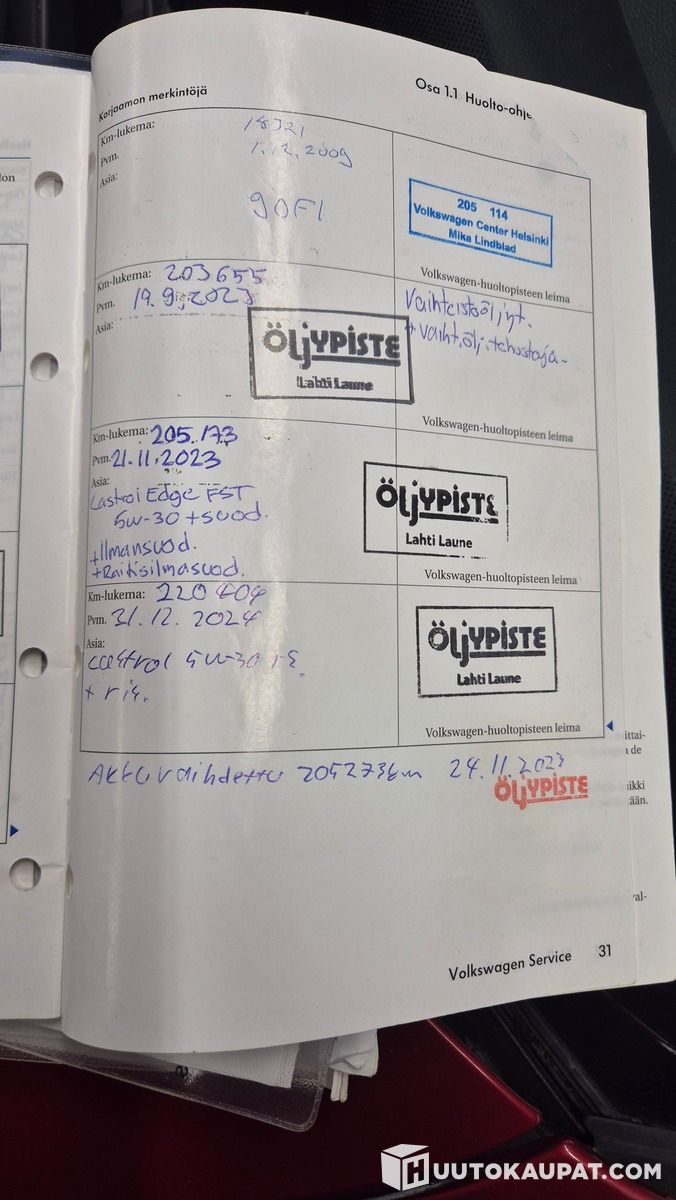 Korjaamon merkintöjä
Osa 1.1 Huolto-ohje
Km-lukema: 18321
Pvm. 1.12.2009
Asia: 90F1
205 114
Volkswagen Center Helsinki
Mika Lindblad
Volkswagen-huoltopisteen leima
Km-lukema: 203655
Pvm. 19.9.2023
Asia:
ÖLJYPISTE
Lahti Laune
Vaihteistoöljyt.
+ vaiht.ölj.tehostaja-
Volkswagen-huoltopisteen leima
Km-lukema: 205.173
Pvm. 21.11.2023
Asia:
Castrol Edge FST
5w-30 + suod.
+Ilmansuod.
+Raitisilmasuod.
ÖLJYPISTE
Lahti Laune
Volkswagen-huoltopisteen leima
Km-lukema: 220404
Pvm. 31.12.2024
Asia:
castrol 5w-30
ÖLJYPISTE
Lahti Laune
Volkswagen-huoltopisteen leima
Akku vaihdettu 205273km 24.11.2023
ÖLJYPISTE
ittai-
de
ikki
ään.
val-
Volkswagen Service 31
HUUTOKAUPAT.COM